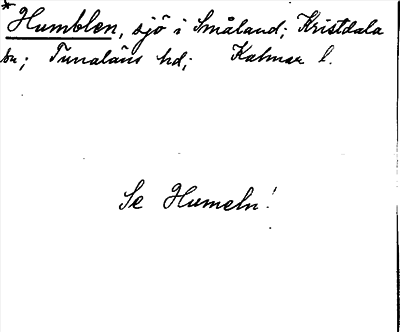 *Humblen, sjö i Småland; Kristdala
sn; Tunaläns hd; Kalmar l.
Se Humeln!